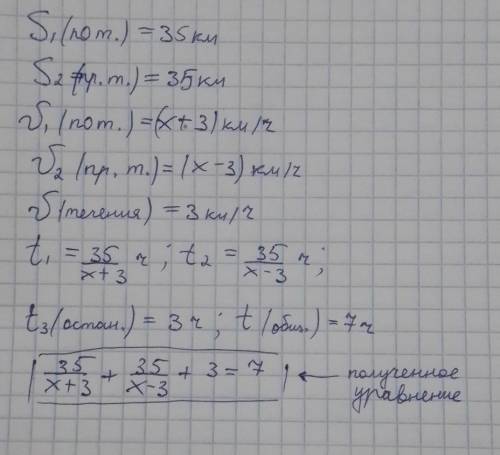 S₁(пот.) = 35 км
S₂(пр.т.) = 35 км
υ₁(пот.) = (x+3) км/ч
υ₂(пр.т.) = (x-3) км/ч
υ(течения) = 3 км/ч
t₁ = 35/(x+3) ч; t₂ = 35/(x-3) ч;
t₃(остан.) = 3 ч; t(общ.) = 7 ч
35/(x+3) + 35/(x-3) + 3 = 7 ← полученное
уравнение